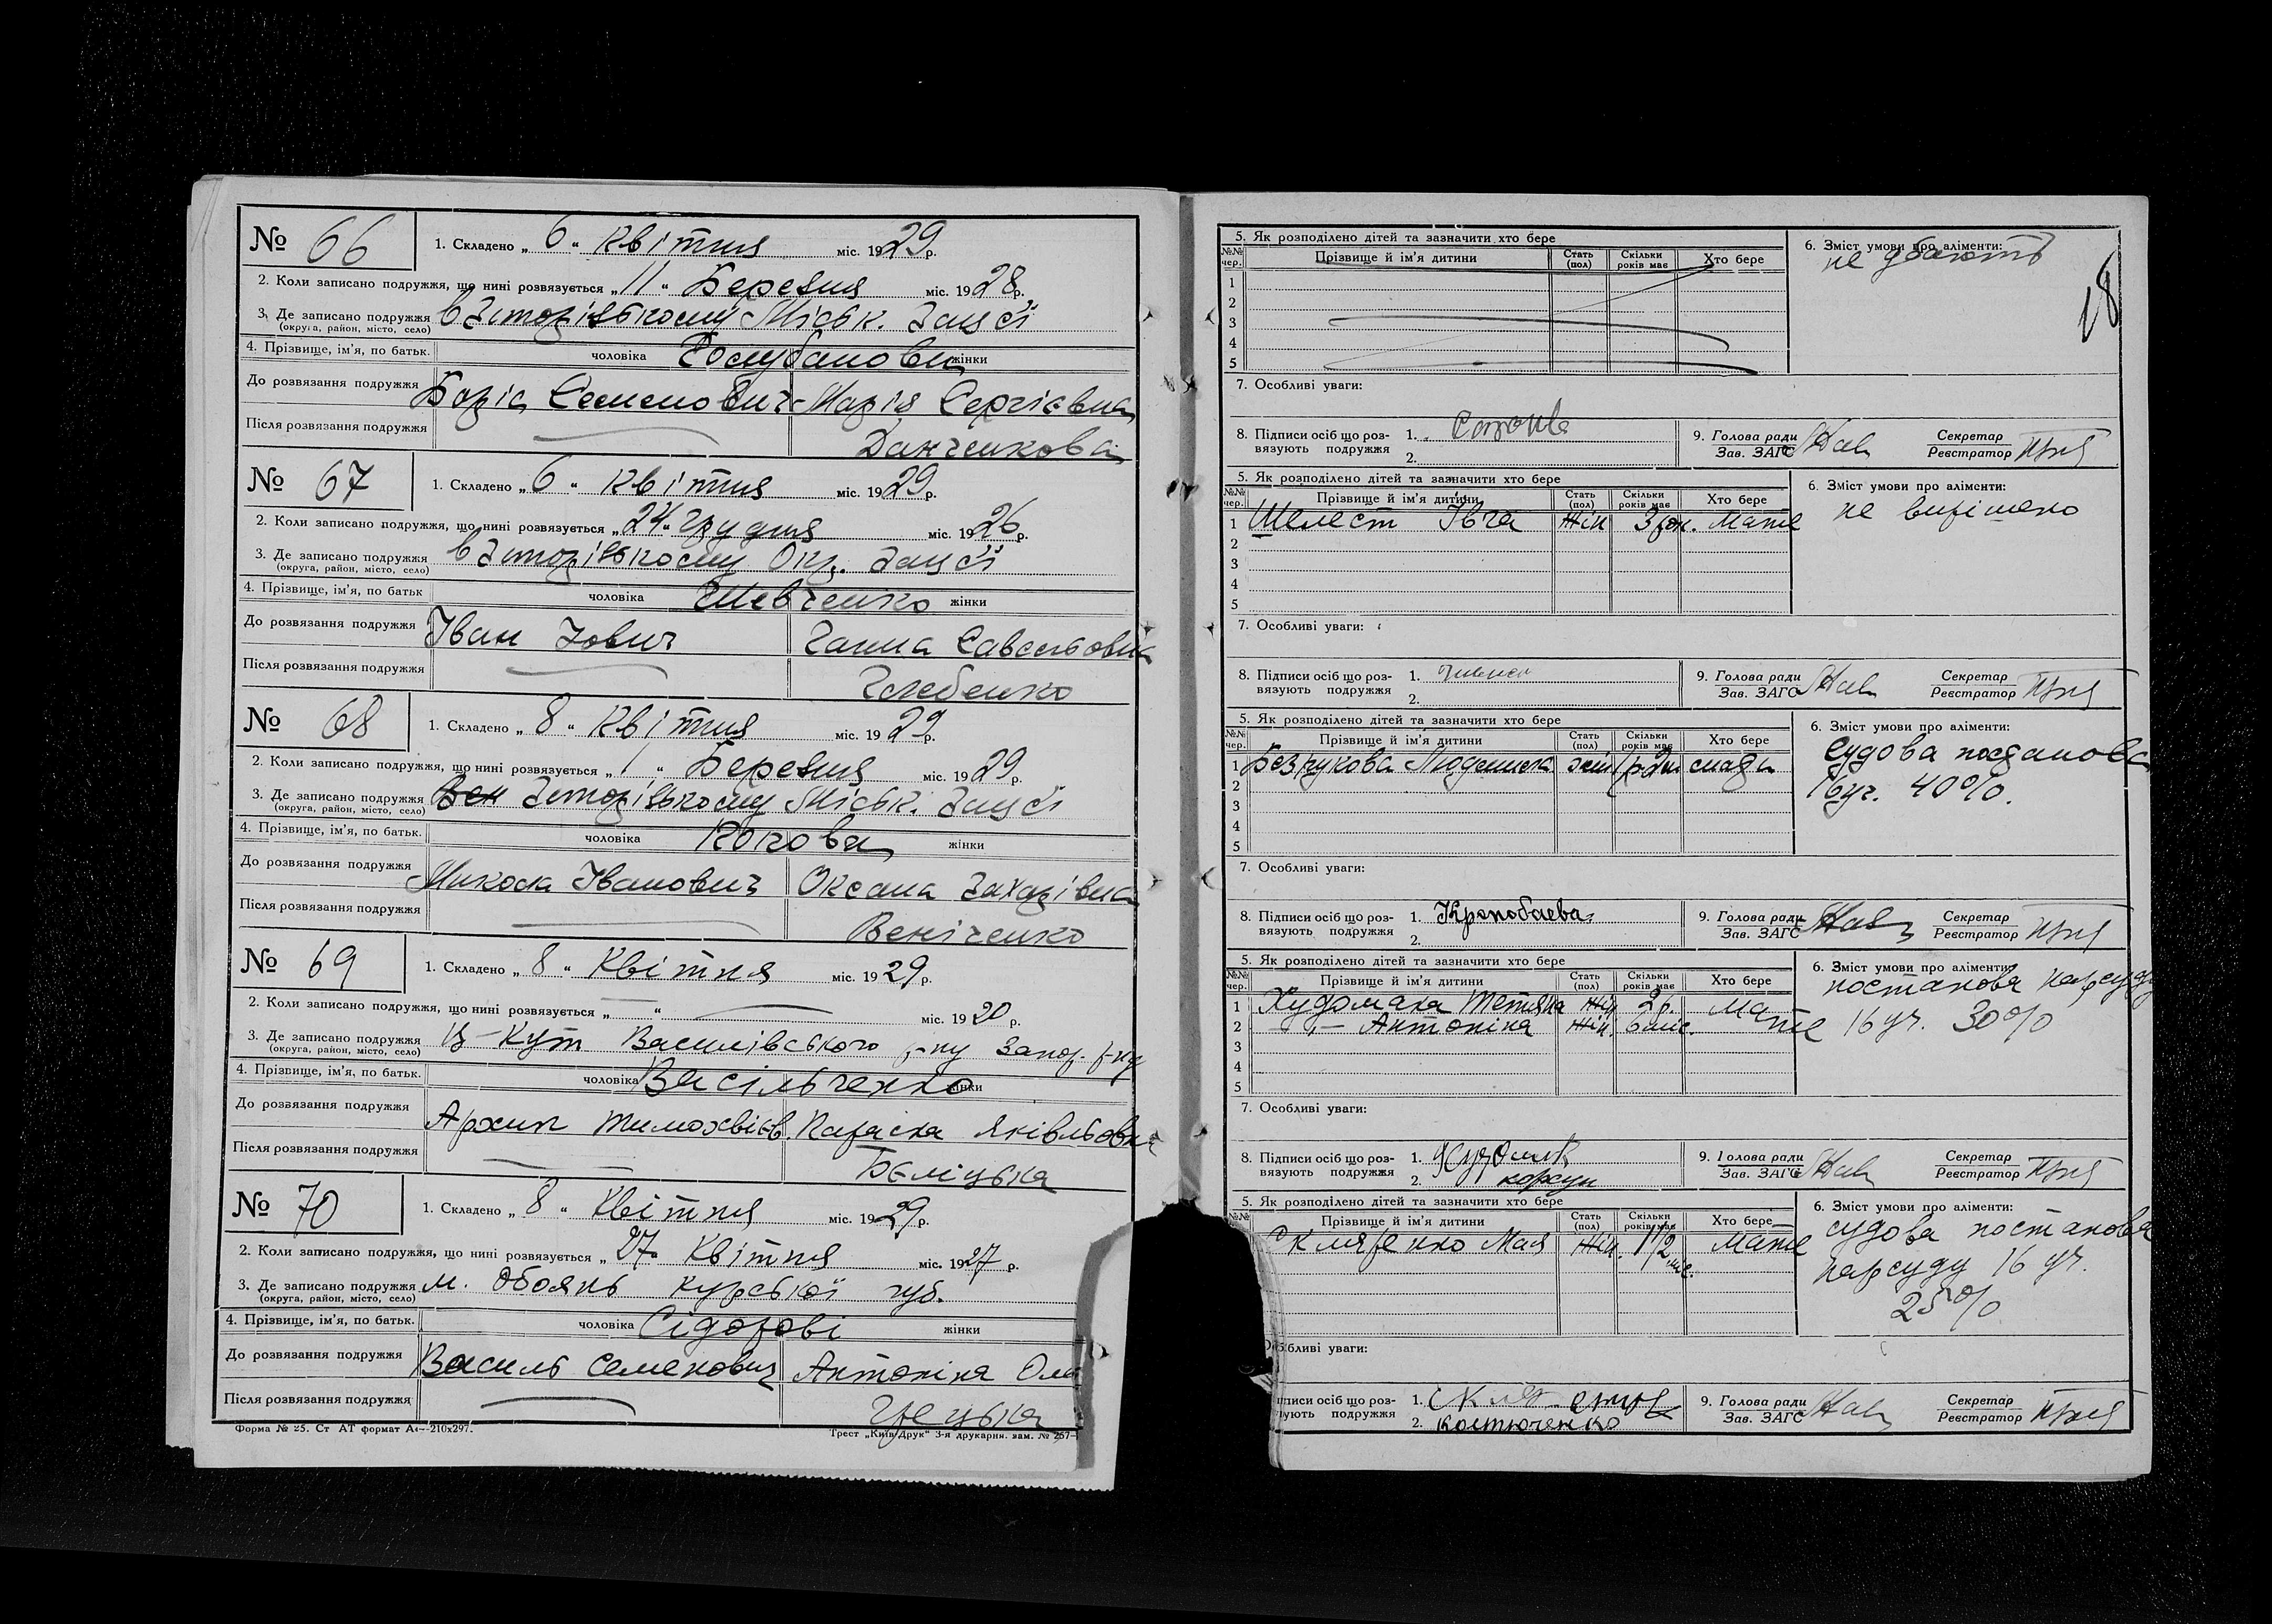 № 66
1. Складено „ 6 “ Квітня міс. 1929 р.
2. Коли записано подружжя, що нині розвязується „ 11 “ Березня міс. 1928 р.
3. Де записано подружжя в Запорізькому Міськ. Загсі
(округа, район, місто, село)
4. Прізвище, ім'я, по батьк. чоловіка жінки
До розвязання подружжя Боріс Семенович Марія Сергієвна
Після розвязання подружжя Данченкова
№ 67
1. Складено „ 6 “ Квітня міс. 1929 р.
2. Коли записано подружжя, що нині розвязується „ 24 “ Грудня міс. 1926 р.
3. Де записано подружжя в Запорізькому Окр. Загсі
(округа, район, місто, село)
4. Прізвище, ім'я, по батьк чоловіка Шевченко жінки
До розвязання подружжя Іван Іович Ганна Савельовна
Після розвязання подружжя Глебенко
№ 68
1. Складено „ 8 “ Квітня міс. 1929 р.
2. Коли записано подружжя, що нині розвязується „ 1 “ Березня міс. 1929 р.
3. Де записано подружжя Запорізькому Міськ. Загсі
(округа, район, місто, село)
4. Прізвище, ім'я, по батьк. чоловіка жінки
До розвязання подружжя Микола Іванович Оксана Захарівна
Після розвязання подружжя Венiченко
№ 69
1. Складено „ 8 “ Квітня міс. 1929 р.
2. Коли записано подружжя, що нині розвязується „ “ міс. 1920 р.
3. Де записано подружжя Кут Василівського р-ну Запор.
(округа, район, місто, село)
4. Прізвище, ім'я, по батьк. чоловіка Васільченко жінки
До розвязання подружжя Архип Тимохвієв. Параска Яківльовна
Після розвязання подружжя Беліцька
№ 70
1. Складено „ 8 “ Квітня міс. 1929 р.
2. Коли записано подружжя, що нині розвязується „ 27 “ Квітня міс. 1927 р.
3. Де записано подружжя м. Обоянь Курської губ.
(округа, район, місто, село)
4. Прізвище, ім'я, по батьк. чоловіка Сідорові жінки
До розвязання подружжя Василь Семенович Антоніна
Після розвязання подружжя Грецька
Форма № 25. Ст АТ формат А4—210х297. Трест „Київ-Друк“ 3-я друкарня. зам. № 257-
5. Як розподілено дітей та зазначити хто бере 6. Зміст умови про аліменти:
№№ чер. Прізвище й ім'я дитини Стать (пол) Скільки років має Хто бере не дбають
18
1
2
3
4
5
7. Особливі уваги:
8. Підписи осіб що розвязують подружжя 1. 2. 9. Голова ради Зав. ЗАГС Секретар Реєстратор
5. Як розподілено дітей та зазначити хто бере 6. Зміст умови про аліменти:
№№ чер. Прізвище й ім'я дитини Стать (пол) Скільки років має Хто бере
1 Шелест Івга Жін 3 рок. Мате не вирішено
2
3
4
5
7. Особливі уваги:
8. Підписи осіб що розвязують подружжя 1. 2. 9. Голова ради Зав. ЗАГС Секретар Реєстратор
5. Як розподілено дітей та зазначити хто бере 6. Зміст умови про аліменти:
№№ чер. Прізвище й ім'я дитини Стать (пол) Скільки років має Хто бере Судова
1 Безрукова Людмила
2 16 уч. 40%.
3
4
5
7. Особливі уваги:
8. Підписи осіб що розвязують подружжя 1. 2. 9. Голова ради Зав. ЗАГС Секретар Реєстратор
5. Як розподілено дітей та зазначити хто бере 6. Зміст умови про аліменти:
№№ чер. Прізвище й ім'я дитини Стать (пол) Скільки років має Хто бере постанова нарсуду
1 Тетяна Жін 2 р. Мате
2 —„— Антоніна Жін. 6 міс. 16 уч. 30%
3
4
5
7. Особливі уваги:
8. Підписи осіб що розвязують подружжя 1. 2. Корсун 9. Голова ради Зав. ЗАГС Секретар Реєстратор
5. Як розподілено дітей та зазначити хто бере 6. Зміст умови про аліменти:
№№ Прізвище й ім'я дитини Стать (пол) Скільки років має Хто бере судова постанова
Скляренко Мая Жін. 1 1/2 міс. Мате нарсуду 16 уч.
25%
Особливі уваги:
Підписи осіб що розвязують подружжя 1. 2. Костюченко 9. Голова ради Зав. ЗАГС Секретар Реєстратор